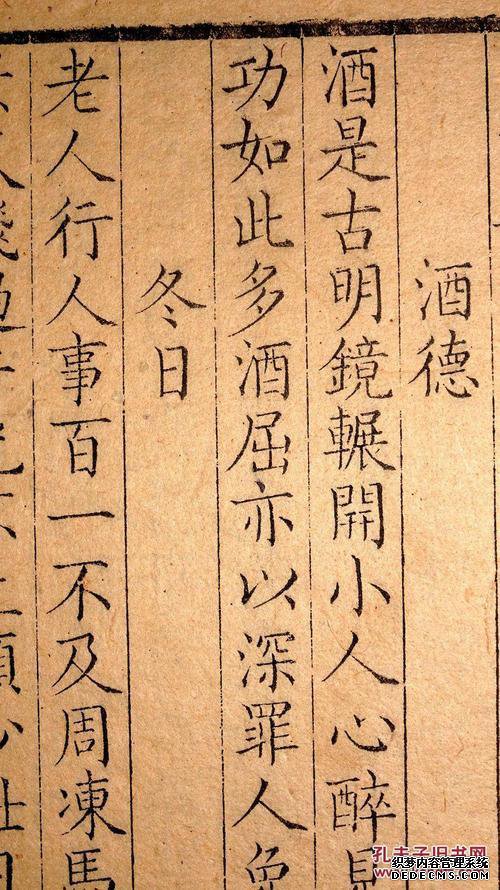 酒德
酒是古明鏡輾開小人心醉見
功如此多酒屈亦以深罪人免
冬日
老人行人事百一不及周凍馬
孔夫子旧书网
织梦内容管理系统
DEDECMS.COM